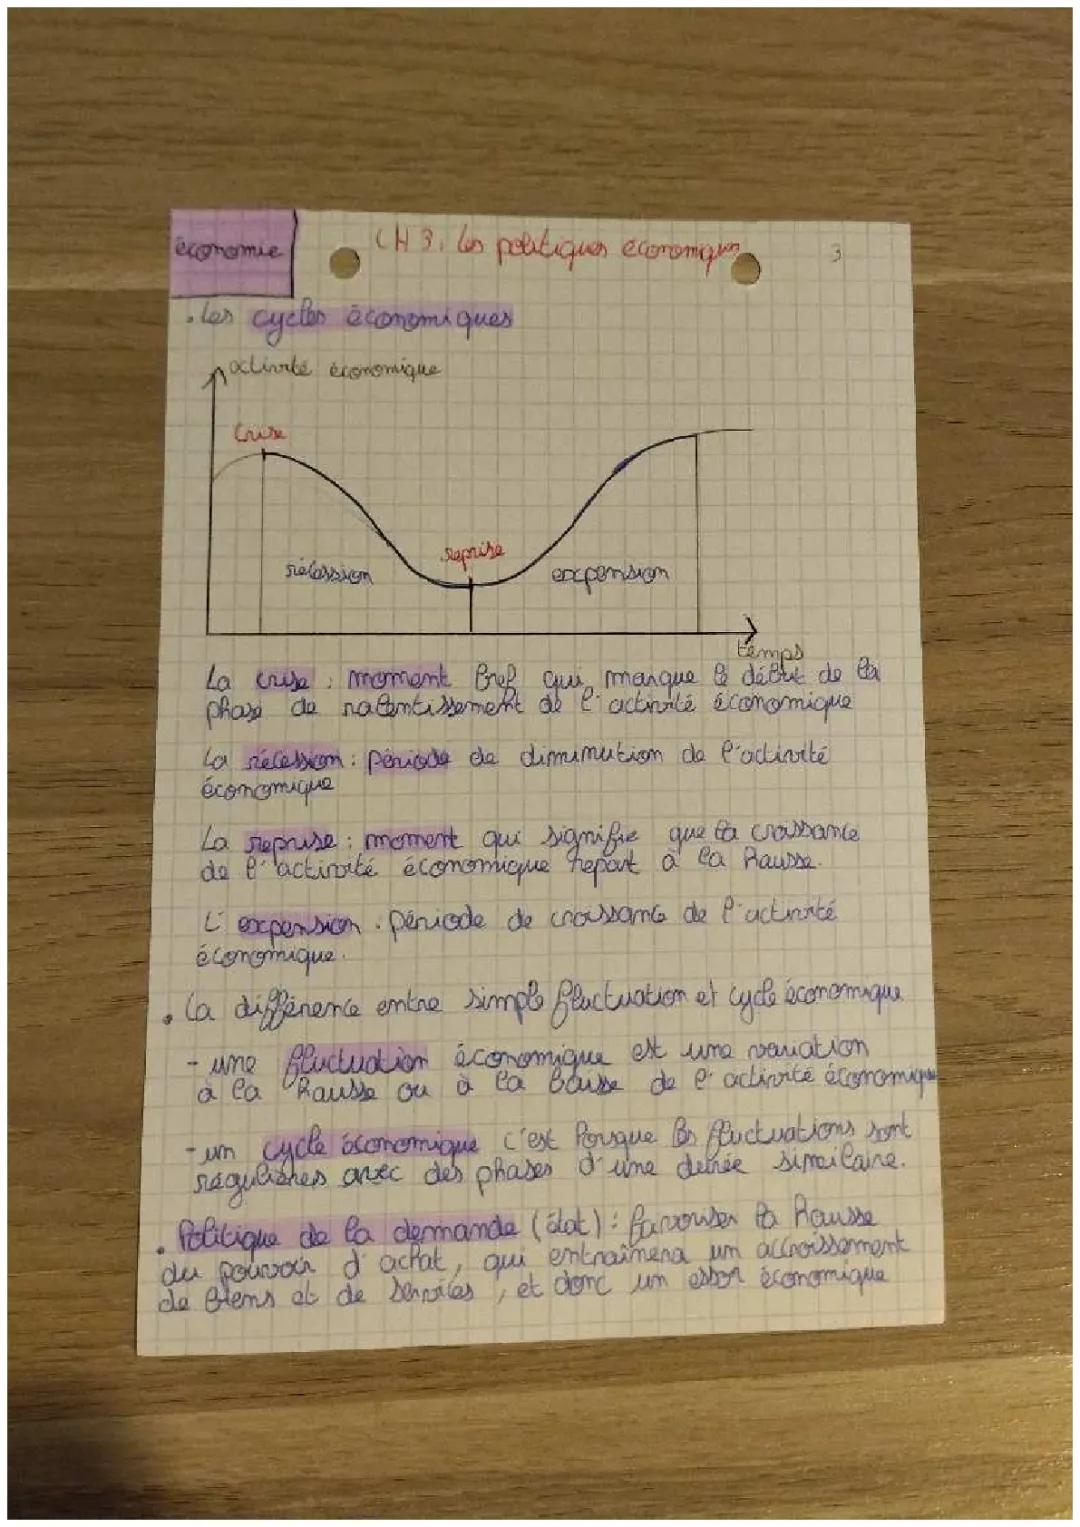 économie
CH 3. Les politiques économiques
3
. Les cycles économiques
activité économique
Crise
reprise
récession
expension
temps
La crise : moment bref qui marque le début de la
phase de ralentissement de l'activité économique
La récession : période de diminution de l'activité
économique
La reprise : moment qui signifie que la croissance
de l'activité économique repart à la hausse.
L'expension : période de croissance de l'activité
économique.
. La différence entre simple fluctuation et cycle économique
- une fluctuation économique est une variation
à la hausse ou à la baisse de l'activité économique
- un cycle économique c'est lorsque les fluctuations sont
régulières avec des phases d'une durée similaire.
. Politique de la demande (état) : favoriser la hausse
du pouvoir d'achat, qui entraînera un accroissement
de biens et de services, et donc un essor économique